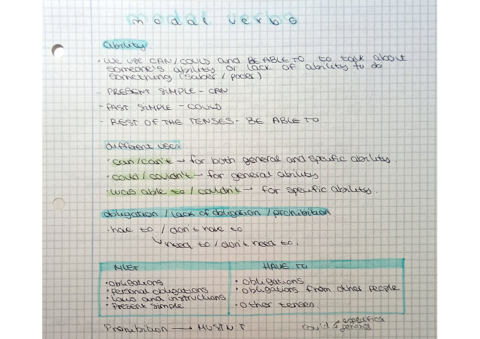 modal verbs
ability
• WE USE CAN/COULD and BE ABLE TO to talk about
someone's ability or lack of ability to do
something (saber / poder)
- PRESENT SIMPLE - CAN
- PAST SIMPLE - COULD
- REST OF THE TENSES - BE ABLE TO
different uses:
• can/can't → for both general and specific ability.
• could/couldn't → for general ability
• was able to / couldn't → for specific ability.
obligation / lack of obligation / prohibition
• have to / don't have to
need to / don't need to.
MUST
• obligations
• personal obligations
• laws and instructions
• Present simple
HAVE TO
• obligations
• obligations from other people
• Other tenses
Prohibition → MUSTN'T